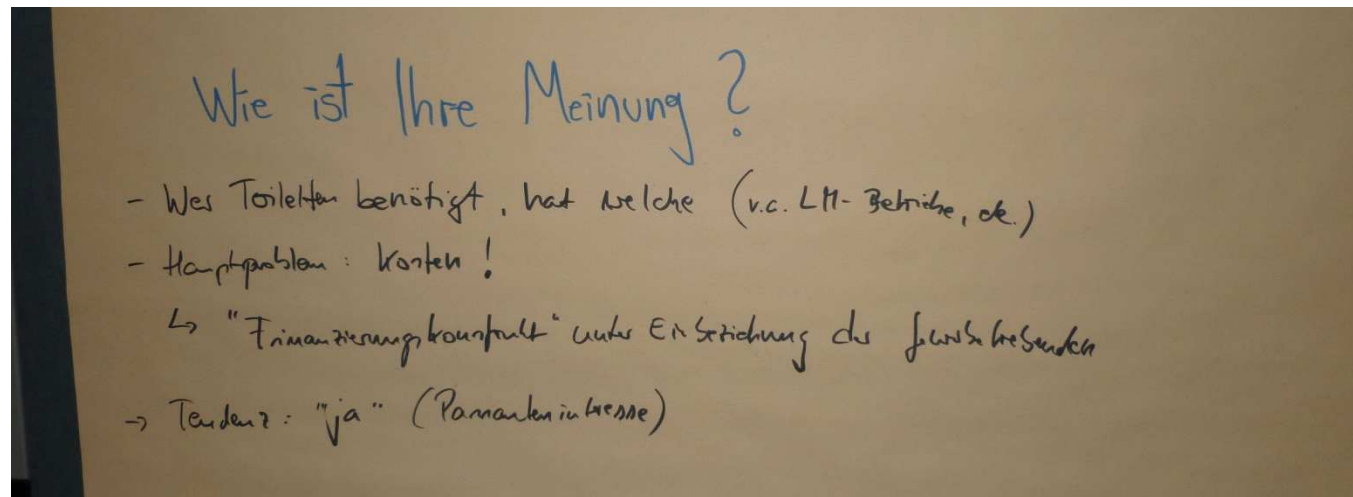 Wie ist Ihre Meinung?
- Wer Toiletten benötigt, hat welche (v.a. LM-Betriebe, etc.)
- Hauptproblem: Kosten!
↳ "Finanzierungskonstrukt" unter Einbeziehung der Gewerbetreibenden
→ Tendenz: "ja" (Passanteninteresse)